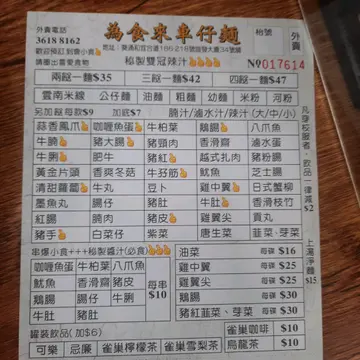 外賣電話
3618 8162
歡迎預訂 到會小食
請圈出需要食物
為食家車仔麵
枱號
外賣
№017614
私製雙冠辣汁
兩餸一麵$35 三餸一麵$42 四餸一麵$47
雲南米線 公仔麵 油麵 粗麵 幼麵 米粉 河粉
另加餸每款$9 加底$7 腩汁/滷水汁/辣汁 (大/中/小)
蒜香鳳爪 咖喱魚蛋 牛柏葉 鵝腸 八爪魚
牛腩 豬大腸 豬頸肉 香滑齋 滷水蛋
牛脷 肥牛 豬紅 越式扎肉 豬粉腸
黃金片頭 香爽冬菇 牛孖筋 魷魚 芝士腸
清甜蘿蔔 牛丸 豆卜 雞中翼 日式蟹柳
墨魚丸 腸仔 魚片 牛肚 香滑枝竹
紅腸 腩肉 豬皮 雞翼尖 貢丸
豬手 白菜仔 紫菜 唐生菜 韮菜、芽菜
凡穿校服者,飲品一律減$2
上湯淨麵$15
串爆小食+++秘製醬汁(必食)
咖喱魚蛋 牛柏葉 八爪魚
魷魚 香滑齋 豬皮
鵝腸 腸仔 牛脷
豬大腸 紅腸 牛肚
每串$10
油菜 每碟 $16
雞中翼 每碟 $25
雞翼尖 每碟 $25
鵝腸 每碟 $30
豬紅韮菜、芽菜 每碟 $30
罐裝飲品(加$6)
雀巢咖啡 $10
可樂 忌廉 雀巢檸檬茶 雀巢雪梨茶 烏龍茶 $10